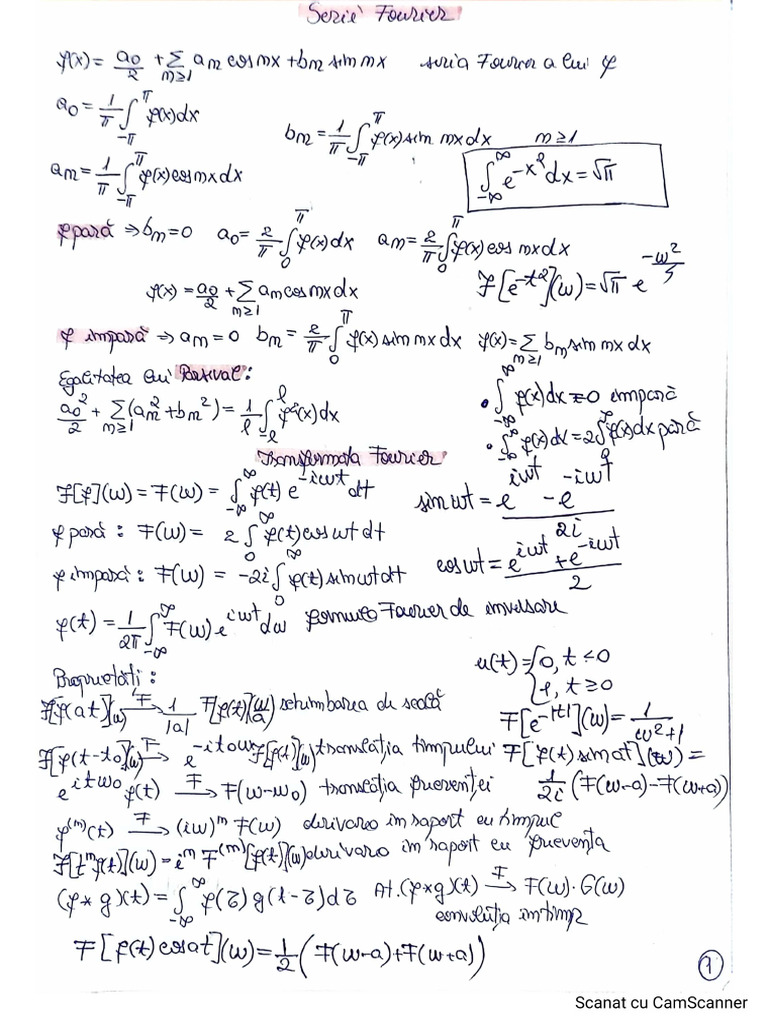 Serii Fourier
f(x) = a₀/2 + Σ_{n≥1} aₙ cos nx + bₙ sin nx   seria Fourier a lui f
a₀ = 1/π ∫_{-π}^{π} f(x)dx
bₙ = 1/π ∫_{-π}^{π} f(x) sin nx dx   n≥1
aₙ = 1/π ∫_{-π}^{π} f(x) cos nx dx
∫_{-∞}^{∞} e^{-x²} dx = √π
f pară ⇒ bₙ = 0   a₀ = 2/π ∫_0^π f(x)dx   aₙ = 2/π ∫_0^π f(x) cos nx dx
f(x) = a₀/2 + Σ_{n≥1} aₙ cos nx dx
F[e^{-t²}](ω) = √π e^{-ω²/4}
f impară ⇒ aₙ = 0   bₙ = 2/π ∫_0^π f(x) sin nx dx   f(x) = Σ_{n≥1} bₙ sin nx dx
Egalitatea lui Parseval:
a₀²/2 + Σ_{n≥1} (aₙ² + bₙ²) = 1/l ∫_{-l}^{l} f²(x)dx
• ∫_{-∞}^{∞} f(x)dx = 0 impară
• ∫_{-∞}^{∞} f(x)dx = 2∫_0^∞ f(x)dx pară
Transformata Fourier
F[f](ω) = F(ω) = ∫_{-∞}^{∞} f(t) e^{-iωt} dt
sin ωt = (e^{iωt} - e^{-iωt})/2i
f pară: F(ω) = 2∫_0^∞ f(t) cos ωt dt
f impară: F(ω) = -2i ∫_0^∞ f(t) sin ωt dt
cos ωt = (e^{iωt} + e^{-iωt})/2
f(t) = 1/2π ∫_{-∞}^{∞} F(ω) e^{iωt} dω   formula Fourier de inversare
Proprietăți:
u(t) = { 0, t < 0
1, t ≥ 0
F[f(at)](ω) →^F 1/|a| F[f(t)](ω/a) schimbarea de scală
F[e^{-|t|}](ω) = 1/(ω²+1)
F[f(t-t₀)](ω) →^F e^{-it₀ω} F[f(t)](ω) translația timpului
F[f(t) sin at](ω) =
1/2i (F(ω-a) - F(ω+a))
e^{itω₀} f(t) →^F F(ω-ω₀) translația frecvenței
f^{(n)}(t) →^F (iω)ⁿ F(ω) derivare în raport cu timpul
F[tⁿf(t)](ω) = iⁿ F^{(n)}[f(t)](ω) derivare în raport cu frecvența
(f * g)(t) = ∫_{-∞}^{∞} f(τ) g(t-τ)dτ   At. (f*g)(t) →^F F(ω)·G(ω)
convoluția în timp
F[f(t) cos at](ω) = 1/2 (F(ω-a) + F(ω+a))
1
Scanat cu CamScanner